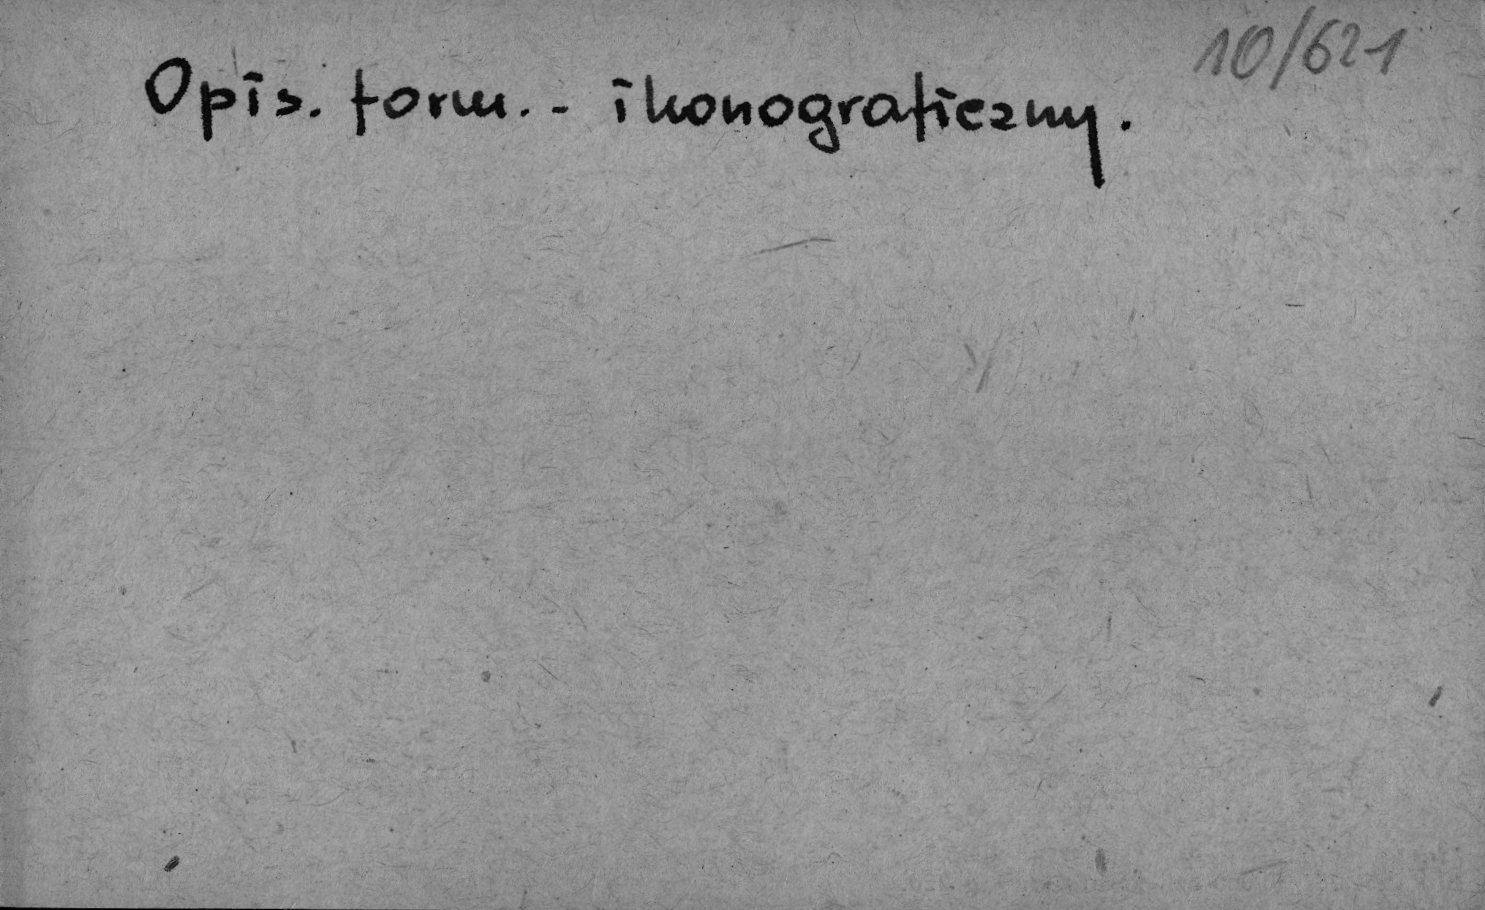 10/621
Opis. form. - ikonograficzny.